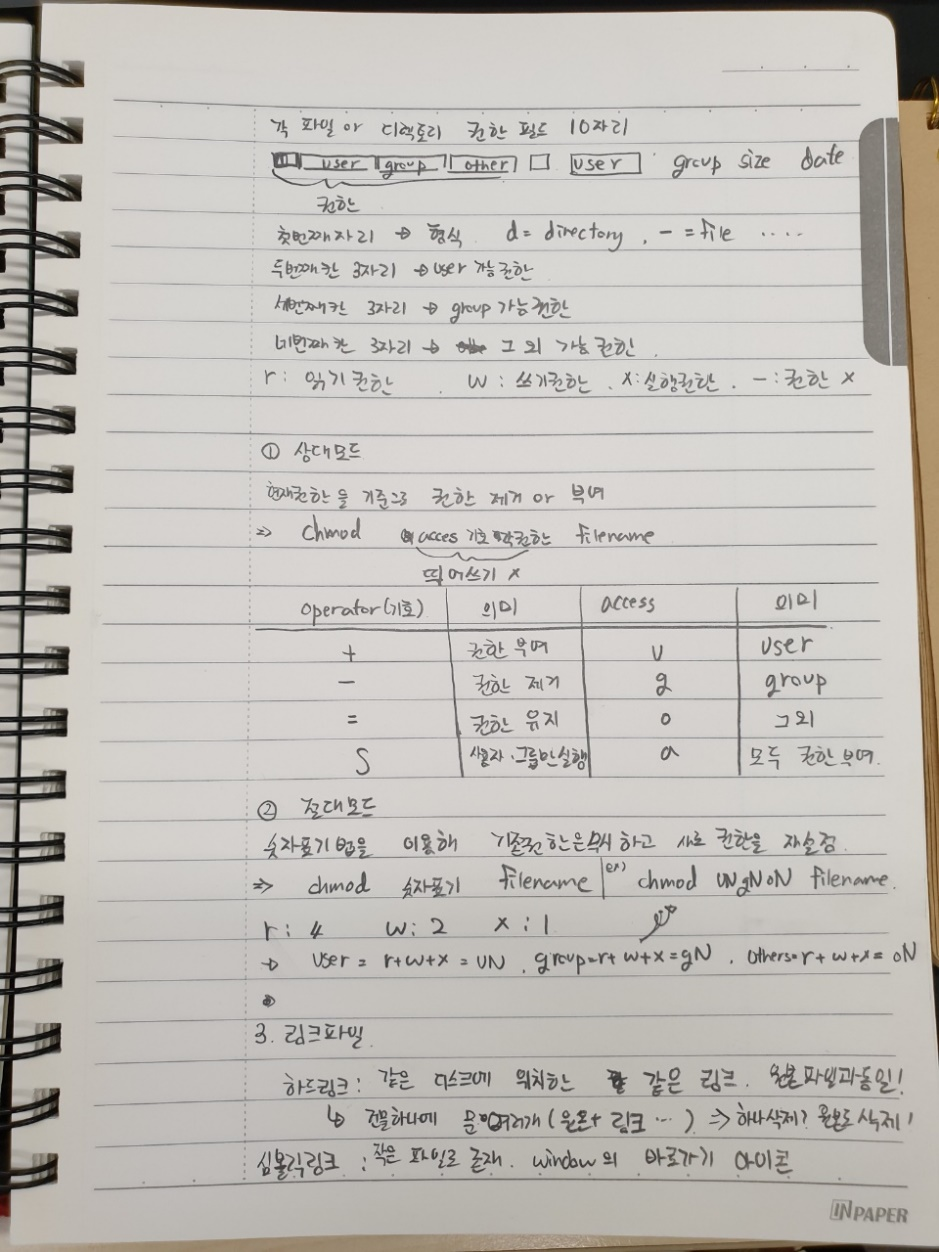 각 파일 or 디렉토리 권한 필드 10자리
user group other user group size date
권한
첫번째 자리 → 형식 d = directory, - = file ....
두번째 칸 3자리 → user 가능 권한
세번째 칸 3자리 → group 가능 권한
네번째 칸 3자리 → 그 외 가능 권한.
r : 읽기 권한. w : 쓰기권한. x : 실행권한. - : 권한 x
① 상대모드
현재권한을 기준으로 권한 제거 or 부여
⇒ chmod acces 기호 권한 filename
띄어쓰기 x
operator(기호) 의미 access 의미
+ 권한 부여 u user
- 권한 제거 g group
= 권한 유지 o 그외
S 사용자·그룹만실행 a 모두 권한부여.
② 절대모드
숫자표기 법을 이용해 기존권한은 무시하고 새로 권한을 재설정.
⇒ chmod 숫자표기 filename | ex) chmod UNgNoN filename.
r : 4 w : 2 x : 1
→ User = r+w+x = UN, group=r+w+x=gN, others=r+w+x= oN
3. 링크파일
하드링크 : 같은 디스크에 위치한 같은 링크. 원본파일과동일!
↳ 건물하나에 문 여러개 (원본+ 링크 ...) ⇒ 하나삭제? 원본도 삭제!
심볼릭링크 : 작은 파일로 존재. window의 바로가기 아이콘
INPAPER